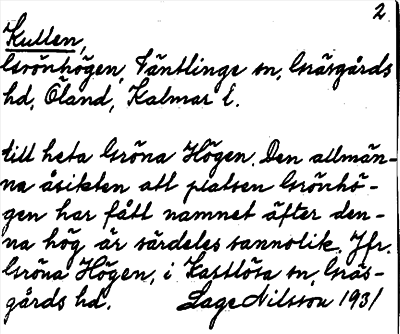 2
Kullen,
Grönhögen, Väntlinge sn, Gräsgårds
hd, Öland, Kalmar l.
till heta Gröna Högen. Den allmän-
na åsikten att platsen Grönhö-
gen har fått namnet äfter den-
na hög är särdeles sannolik. Jfr.
Gröna Högen, i Kastlösa sn, Gräs-
gårds hd. Lage Nilsson 1931